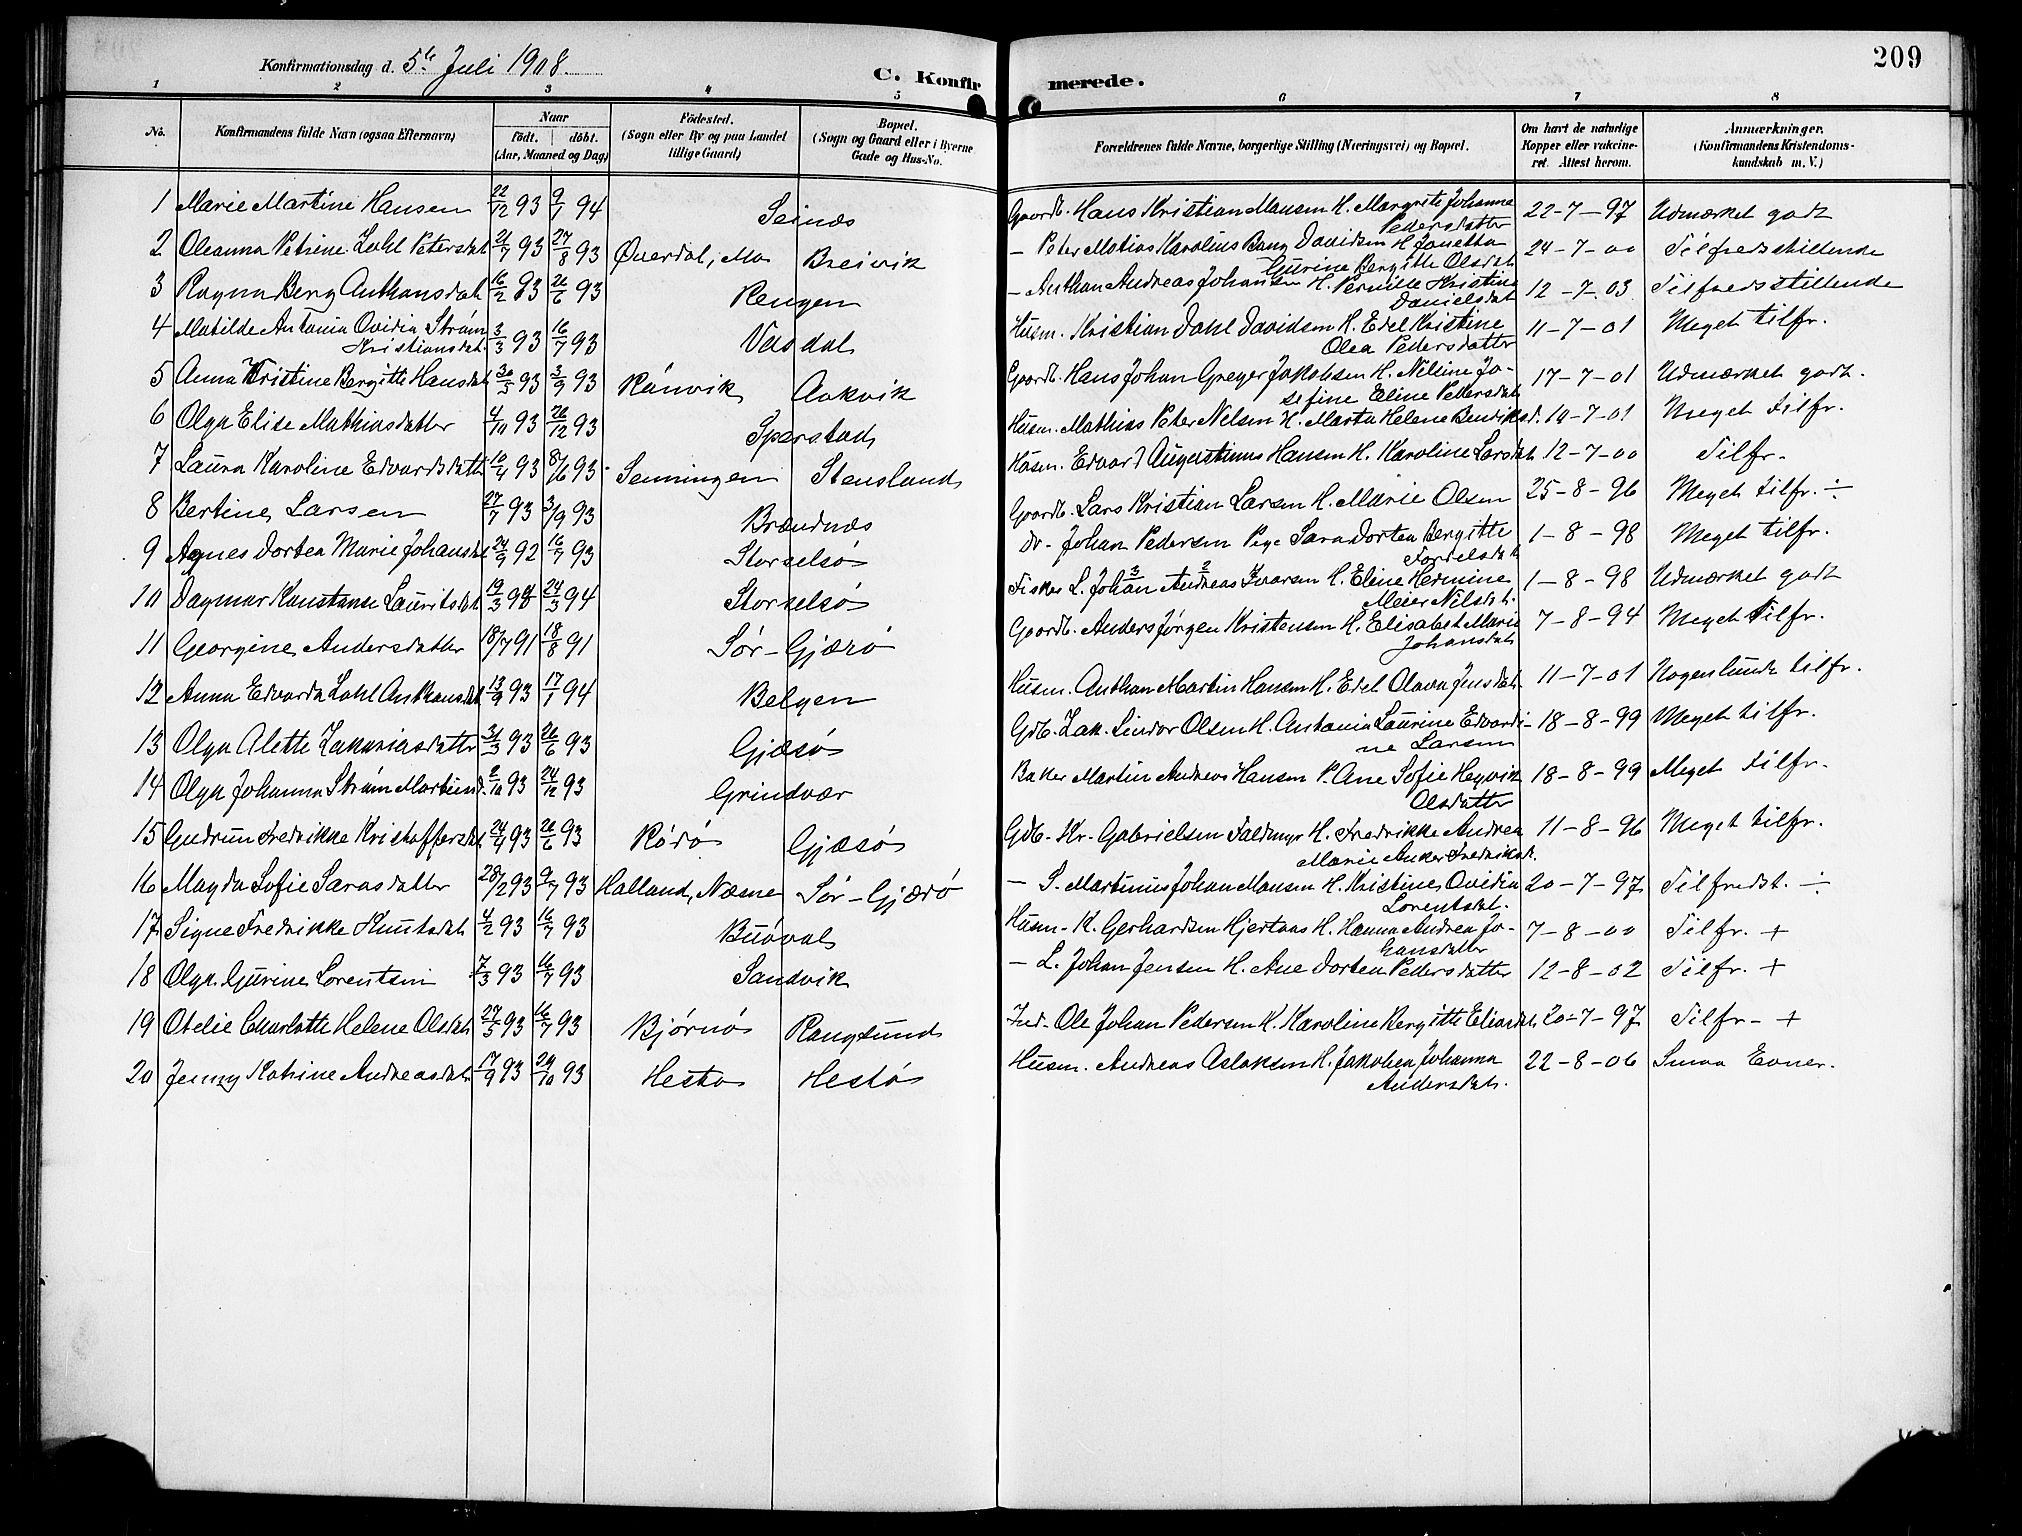 209
Konfirmationsdag d. 5te Juli 1908.
C. Konfirmerede.
1 2 3 4 5 6 7 8
No. Konfirmandens fulde Navn (ogsaa Efternavn) Naar født. døbt. (Aar, Maaned og Dag) Fødested. (Sogn eller By og paa Landet tillige Gaard) Bopæl. (Sogn og Gaard eller i Byerne Gade og Hus-No. Forældrenes fulde Navne, borgerlige Stilling (Næringsvei) og Bopæl. Om havt de naturlige Kopper eller vaccineret. Attest herom. Anmærkninger. (Konfirmandens Kristendomskundskab m. V.)
1 Marie Martine Hansen 22/12 93 9/1 94 Seinæs Gaardb. Hans Kristian Hansen H. Margrete Johanna Pedersdatter 22-7-97 Udmærket godt
2 Oleanna Petrine Dahl Petersdat 21/7 93 27/8 93 Øverdal, Mo Breivik - Peter Matias Karolius Bang Davidsen H. Janetta Gurine Bergitte Olsdat. 24-7-00 Tilfredsstillende
3 Ragna Berg Anthonsdat 16/2 93 26/6 93 Rengen - Anthon Andreas Johansen H. Pernille Kristine Danielsdat 12-7-03 Tilfredsstillende
4 Matilde Antonia Ovidia Strøm Kristiansdat. 3/3 93 16/7 93 Vaadal Husm. Kristian Dahl Davidsen H. Edel Kristine Olea Pedersdatter 11-7-01 Meget tilfr.
5 Anna Kristine Bergitte Hansdat 30/5 93 3/9 93 Rånvik Aakvik Gaardb. Hans Johan Greger Jakobsen H. Nilsine Josefine Eline Pedersdat 17-7-01 Udmærket godt.
6 Olga Elise Mathiasdatter 4/10 93 26/12 93 Sperstad Husm. Mathias Peter Nilsen H. Marta Helene Bendiksd. 10-7-01 Meget tilfr.
7 Laura Karoline Edvardsdatt 10/4 93 8/6 93 Senningen Stensland Husm. Edvard Augustinus Hansen H. Karoline Larsdat. 12-7-00 Tilfr.
8 Bertine Larsen 27/7 93 3/9 93 Brændnæs Gaardb. Lars Kristian Larsen H. Marie Olsen 25-8-96 Meget tilfr. ÷
9 Agnes Dortea Marie Johansdat 24/9 92 16/7 93 Storselsø Dr. Johan Pedersen Pige Sara Dortea Bergitte Tordelsdat 1-8-98 Meget tilfr.
10 Dagmar Konstanse Lauritsdat 19/3 94 24/3 94 Storselsø Fisker L. Johan Andreas Ivarsen H. Eline Hermine Meier Nilsdat. 1-8-98 Udmærket godt
11 Georgine Andersdatter 18/7 91 18/8 91 Sør-Gjærø Gaardb. Anders Jørgen Kristensen H. Elisabet Marie Johansdat 7-8-94 Meget tilfr.
12 Anna Edvarda Dahl Anthonsdat 13/9 93 17/1 94 Belgen Husm. Anthon Martin Hansen H. Edel Olava Jensdat. 11-7-01 Nogenlunde tilfr.
13 Olga Alette Zakariasdatter 31/3 93 26/6 93 Gjæsø Gdb. Zak. Sindor Olsen H. Antonia Laurine Edvardine Larsen 18-8-99 Meget tilfr.
14 Olga Johanna Strøm Martinsd. 2/10 93 24/12 93 Grindvær Baker Martin Andreas Hansen P. Ane Sofie Hegvik Olsdatter 18-8-99 Meget tilfr.
15 Gudrun Fredrikke Kristoffersdat 24/4 93 26/6 93 Rødø Gjæsø Gdb. Kr. Gabrielsen Faldmyr H. Fredrikke Andrea Marie Anker Fredriksd. 11-8-96 Meget tilfr.
16 Magda Sofie Sarasdatter 28/2 93 9/7 93 Halland, Næsne Sør-Gjærø - S. Martinus Johan Hansen H. Kristine Ovidia Lorentsdat. 20-7-97 Tilfredst. ÷
17 Signe Fredrikke Knutsdat 4/2 93 16/7 93 Buøval Husm. K. Gerhardsen Hjertaas H. Hanna Andrea Johansdatter 7-8-00 Tilfr. +
18 Olga Gurine Lorentsen 7/3 93 16/7 93 Sandvik - L. Johan Jensen H. Ane Dortea Pedersdatter 12-8-02 Tilfr. +
19 Otelie Charlotte Helene Olsdat 27/5 93 16/7 93 Bjørnø Rangsund Ind. Ole Johan Pedersen H. Karoline Bergitte Eliasdat. 20-7-97 Tilfr - +
20 Jenny Katrine Andreasdat. 17/9 93 29/10 93 Hestø Hestø Husm. Andreas Aslaksen H. Jakobea Johanna Andersdat. 22-8-06 Smaa Evner.